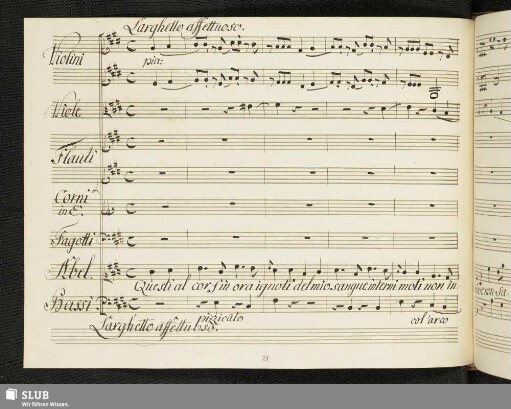 Larghetto affettuoso.
Violini
pia:
Viole
Flauti
Corni
in E.
Fagotti
Abel.
Questi al cor fin ora ignoti del mio sangue interni moti non in
Bassi
pizzicato
col'arco
Larghetto affettuoso.
SLUB
Wir führen Wissen.